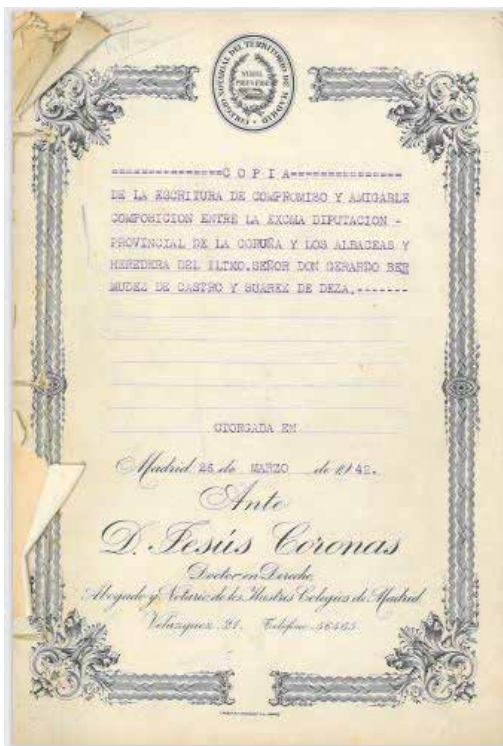 COLEGIO NOTARIAL DEL TERRITORIO DE MADRID
NIHIL PRIUS FIDE
================C O P I A================
DE LA ESCRITURA DE COMPROMISO Y AMIGABLE
COMPOSICION ENTRE LA EXCMA DIPUTACION -
PROVINCIAL DE LA CORUÑA Y LOS ALBACEAS Y
HEREDERA DEL ILTMO.SEÑOR DON GERARDO BER
MUDEZ DE CASTRO Y SUAREZ DE DEZA.-------
OTORGADA EN
Madrid 26 de MARZO de 1942.
Ante
D. Jesús Coronas
Doctor en Derecho,
Abogado y Notario de los Ilustres Colegios de Madrid
Velazquez, 21. Teléfono 56465